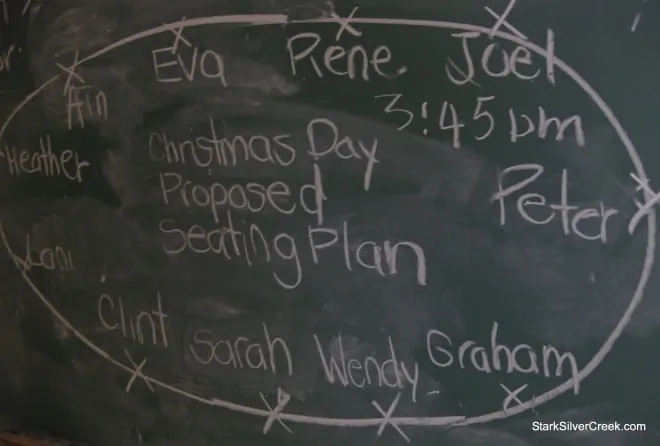 Eva Rene Joel
Ain
3:45pm
Heather
Christmas Day
Proposed
Peter
Seating Plan
Lani
Clint
Sarah Wendy Graham
StarkSilverCreek.com